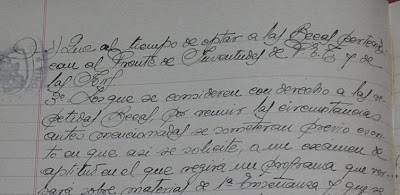 ) Que al tiempo de optar a las Becas pertenez-
can al Frente de Juventudes de F.E.T. y de
las Jons.
3º Los que se consideren con derecho a las re-
petidas Becas, por reunir las circunstancias
antes mencionadas se someteran previo even-
to en que asi se solicite, a un examen de
aptitud en el que regira un programa que ver-
sará sobre materias de 1ª Enseñanza y que se